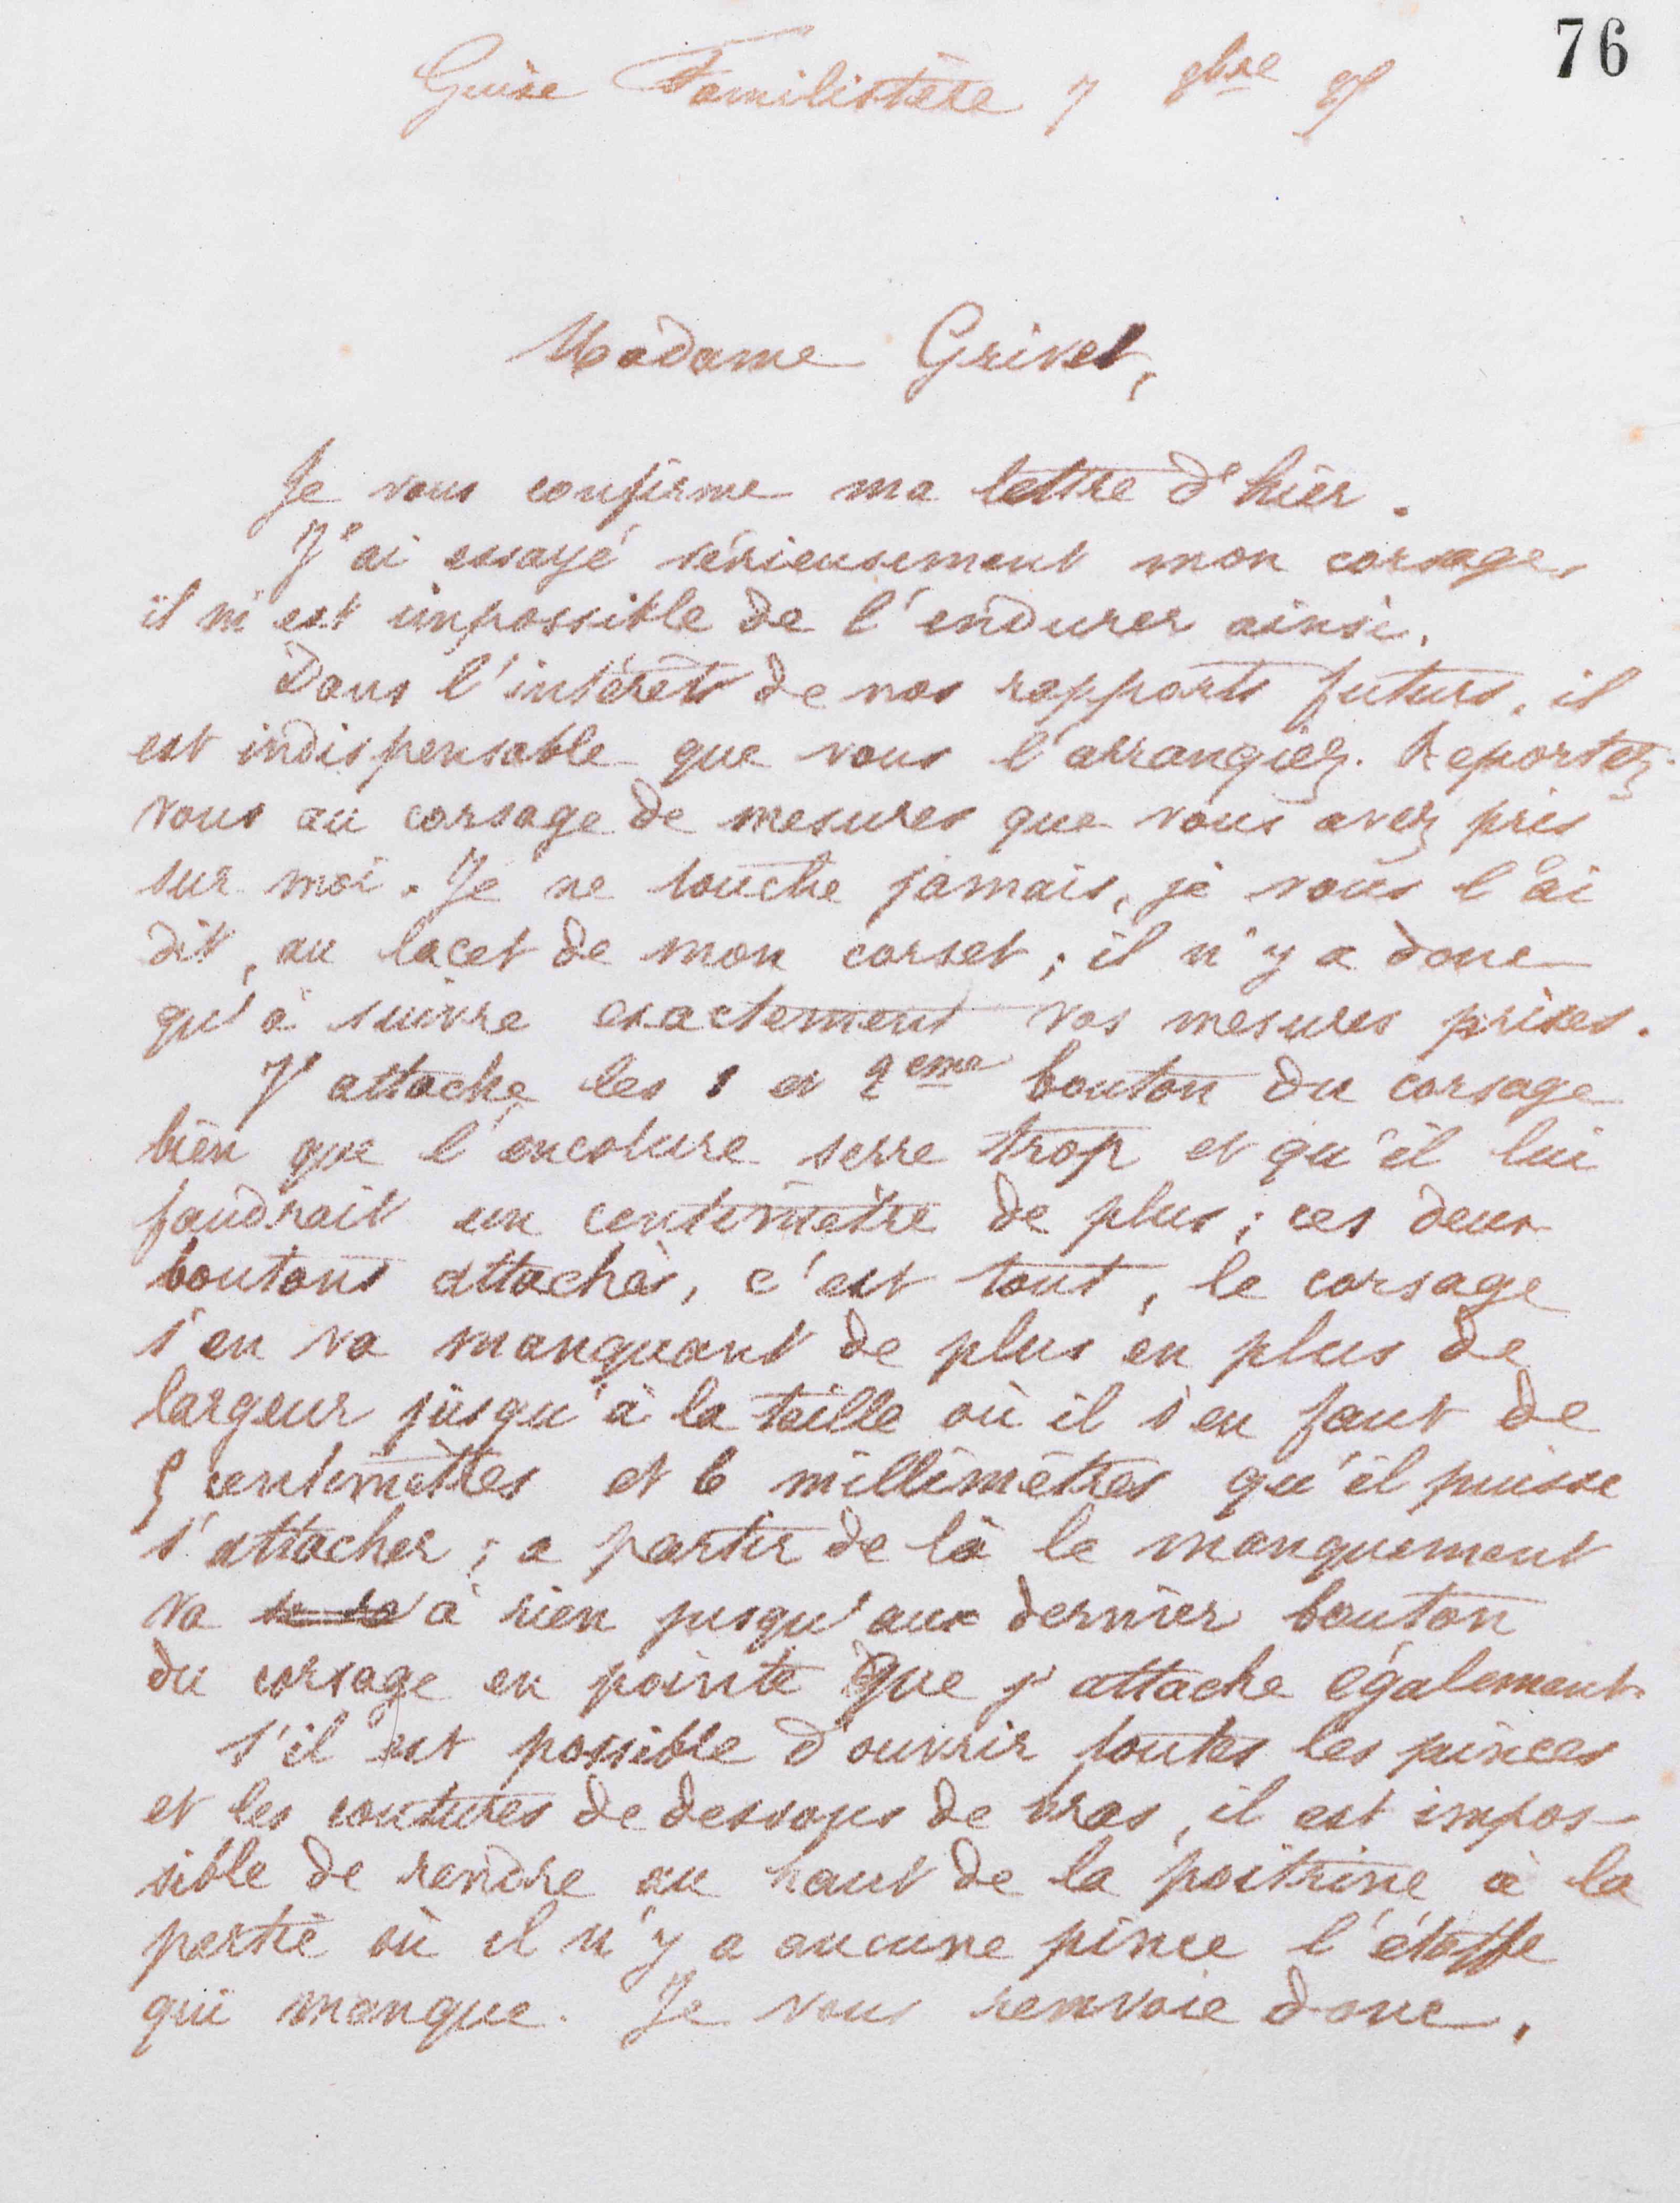 76
Guise Familistère 7 9bre
Madame Grivel,
Je vous confirme ma lettre d'hier.
J'ai essayé sérieusement mon corsage,
il m'est impossible de l'endurer ainsi.
Dans l'intérêt de nos rapports futurs, il
est indispensable que vous l'arrangiez. Reportez-
vous au corsage de mesures que vous avez pris
sur moi. Je ne touche jamais, je vous l'ai
dit, au lacet de mon corset ; il n'y a donc
qu'à suivre exactement vos mesures prises.
J'attache les 1 et 2eme bouton du corsage
bien que l'encolure serre trop et qu'il lui
faudrait un centimètre de plus ; ces deux
boutons attachés, c'est tout, le corsage
s'en va manquant de plus en plus de
largeur jusqu'à la taille où il s'en faut de
5 centimètres et 6 millimètres qu'il puisse
s'attacher ; a partir de là le manquement
va à rien jusqu'aux dernier bouton
du corsage en pointe que j'attache également.
S'il est possible d'ouvrir toutes les pinces
et les coutures de dessous de bras, il est impos-
sible de rendre au haut de la poitrine à la
partie où il n'y a aucune pince l'étoffe
qui manque. Je vous renvoie donc,